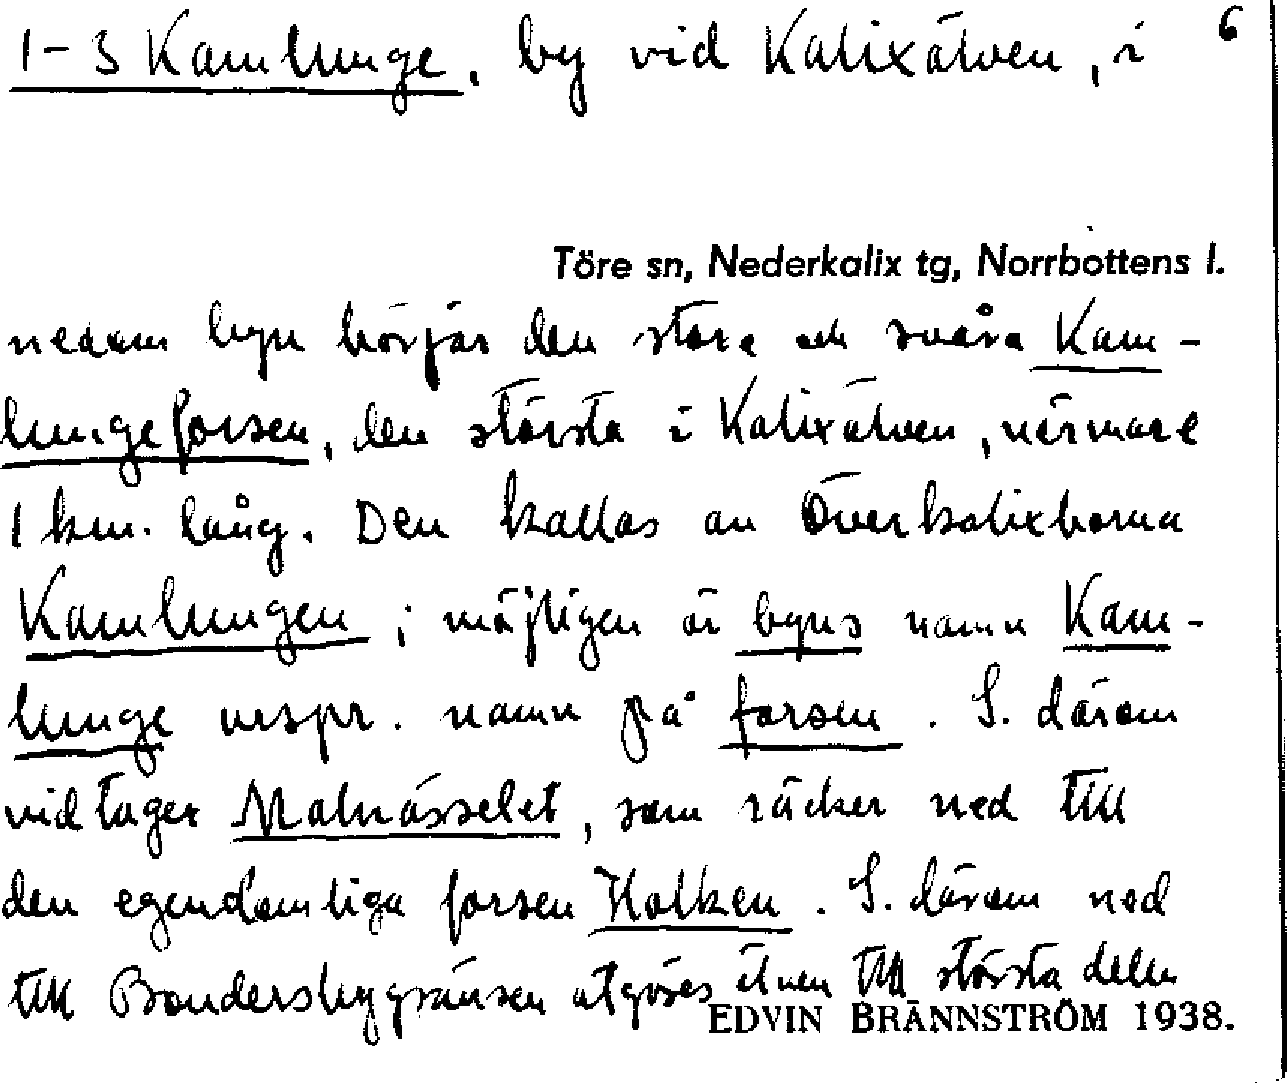 1-3 Kamlunge, by vid Kalixälven, i 6
Töre sn, Nederkalix tg, Norrbottens l.
nedom byn börjar den stora och svåra Kam-
lungeforsen, den största i Kalixälven, närmare
1 km. lång. Den kallas av Överkalixborna
Kamlungen; möjligen är byns namn Kam-
lunge urspr. namn på forsen. S. därom
vidtager Malnässelet, som räcker ned till
den egendomliga forsen Holken. S. därom ned
till Bondersbygränsen utgöres älven till största delen
EDVIN BRÄNNSTRÖM 1938.